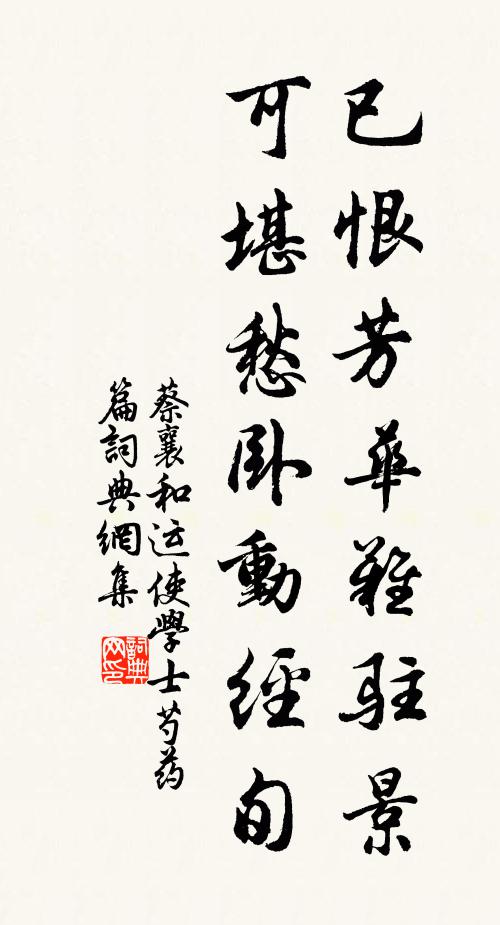 已恨芳華難駐景
可堪愁臥動經旬
蔡襄和运使學士芍药
篇詞典網集
詞典网印